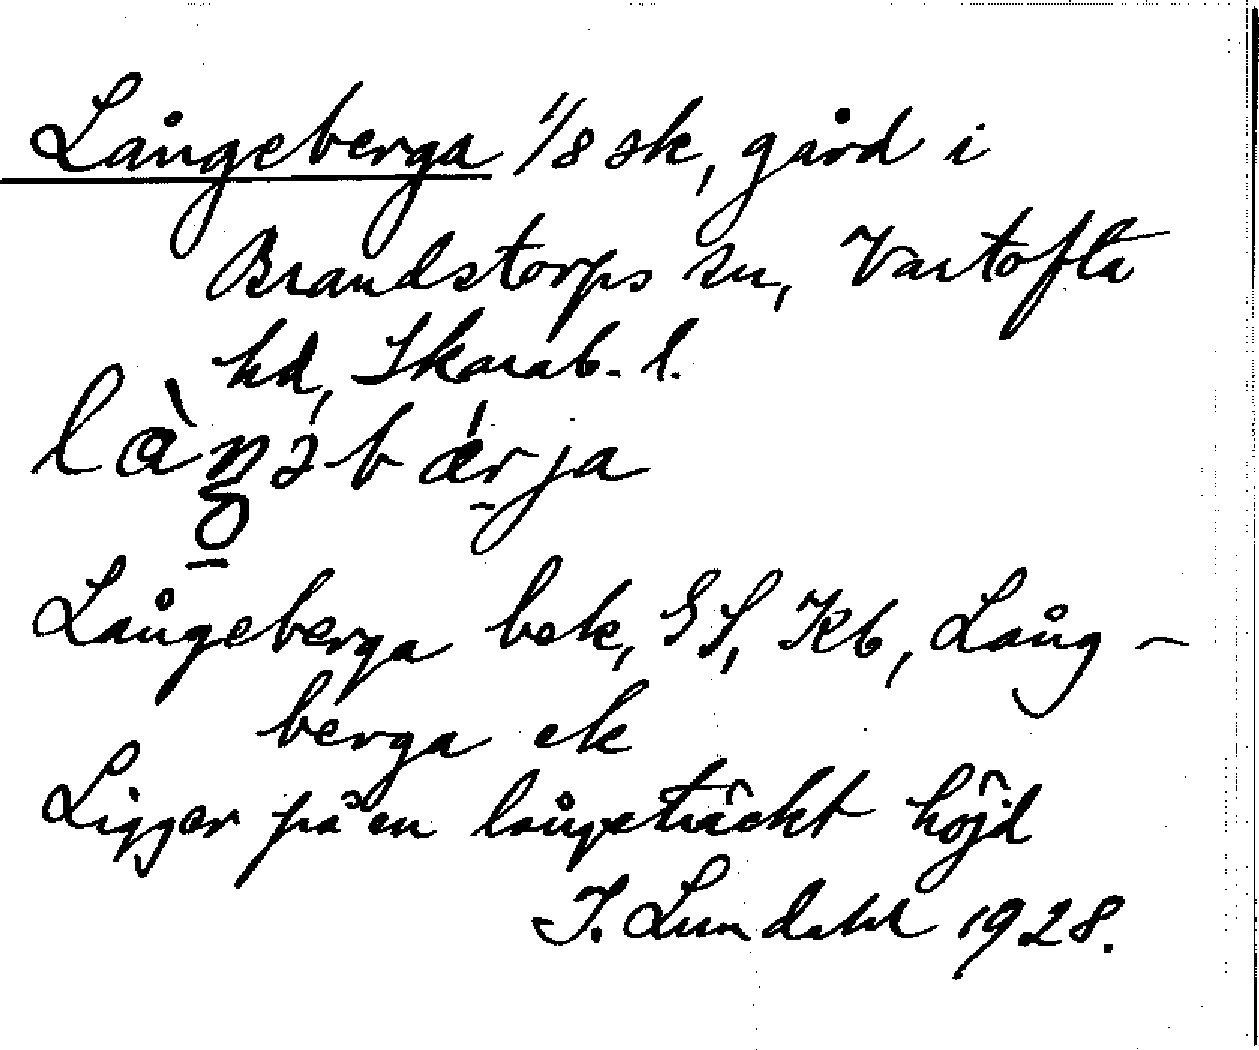 Långeberga 1/8 sk, gård i
Brandstorps sn, Vartofta
hd, Skarab. l.
làŋəbǽrja
Långeberga bek, GS, Kb, Lång-
berga ek
Ligger på en långsträckt höjd
I. Lundahl 1928.